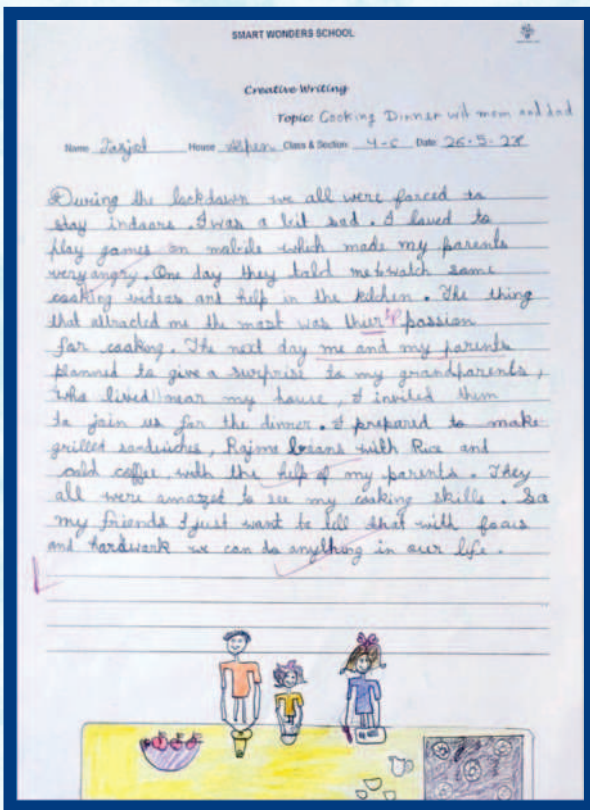 SMART WONDERS SCHOOL
Creative Writing
Topic: Cooking Dinner wit mom and dad
Name Jasjot House Aspen Class & Section 4-C Date 26.5.28
During the lockdown we all were forced to
stay indoors. I was a bit sad. I loved to
play games on mobile which made my parents
very angry. One day they told me to watch some
cooking videos and help in the kitchen. The thing
that attracted me the most was their passion
for cooking. The next day me and my parents
planned to give a surprise to my grandparents,
who lived near my house, I invited them
to join us for the dinner. I prepared to make
grilled sandwiches, Rajma beans with Rice and
cold coffee, with the help of my parents. They
all were amazed to see my cooking skills. So
my friends I just want to tell that with focus
and hardwork we can do anything in our life.